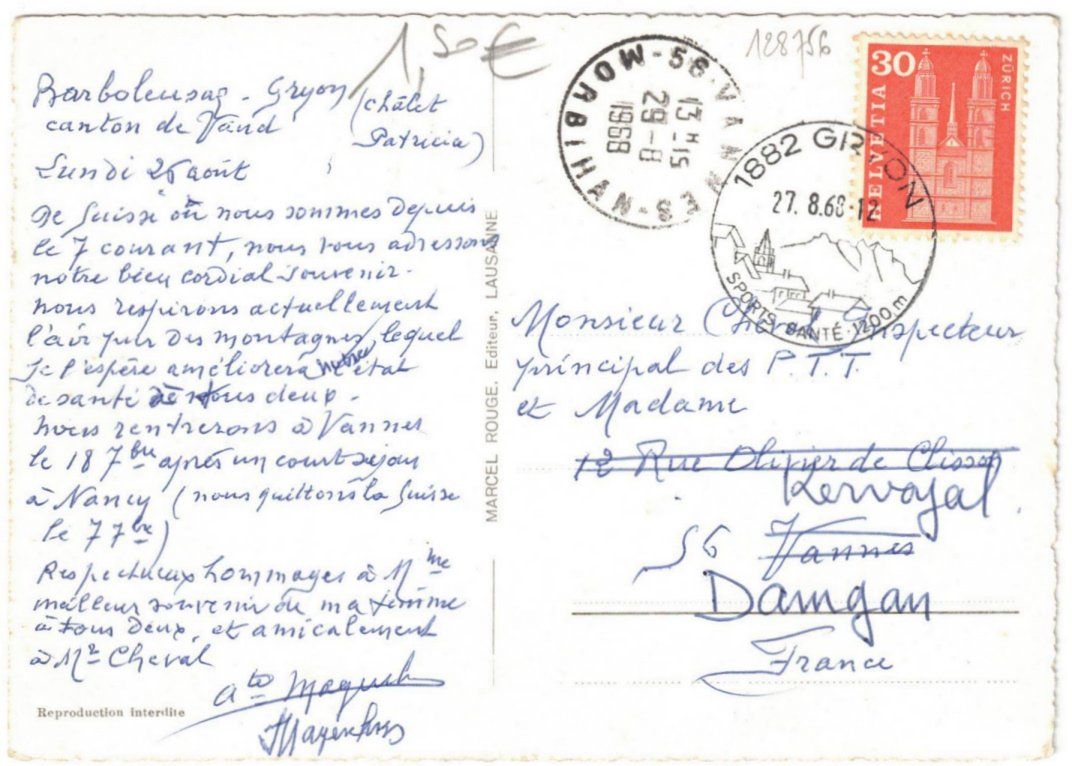 1,50€
128756
Barboleusaz - Gryon (châlet
canton de Vaud Patricia)
Lundi 26 août
De Suisse où nous sommes depuis
le 7 courant, nous vous adressons
notre bien cordial souvenir.
nous respirons actuellement
l'air pur des montagnes, lequel
je l'espère améliorera notre état
de santé à tous deux.
nous rentrerons à Vannes
le 18 7bre après un court séjour
à Nancy (nous quittons la Suisse
le 7 7bre)
Respectueux hommages à Mme
meilleur souvenir de ma femme
à tous deux, et amicalement
à Mr Cheval
Reproduction interdite
MARCEL ROUGE, Editeur, LAUSANNE
56 - VANNES
13H15
29-8
1968
MORBIHAN
1882 GRYON
27.8.68-12
SPORTS SANTÉ · 1200m
30
HELVETIA
ZÜRICH
Monsieur Cheval Inspecteur
principal des P.T.T.
et Madame
12 Rue Olivier de Clisson
Kervoyal
56 Vannes
Damgan
France